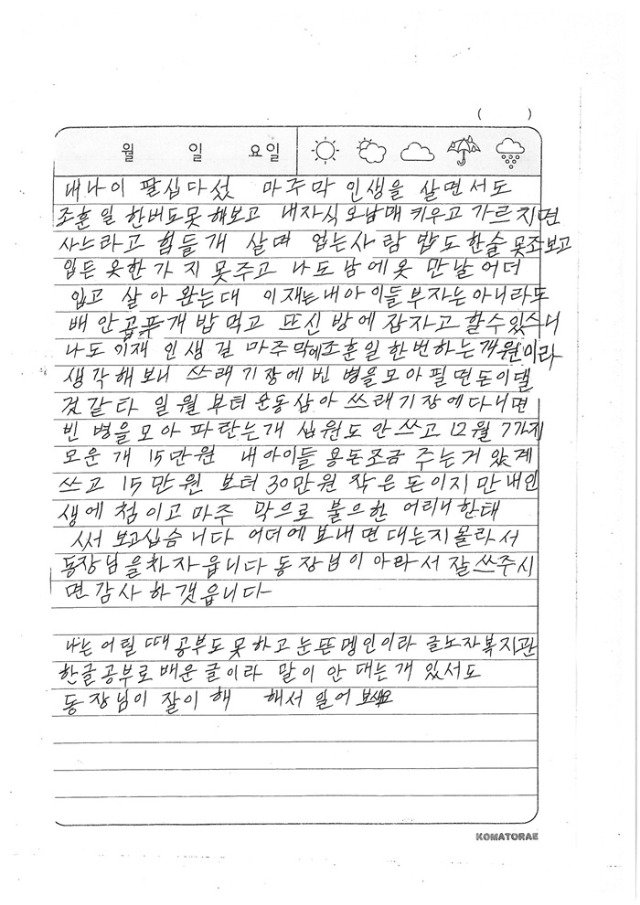 ( )
월 일 요일
내나이 팔십다섯 마주막 인생을 살면서도
조훈일 한버도못 해보고 내자식오남매 키우고 가르지면
사느라고 힘들개 살며 업는사람 밥도한술 못조보고
입든 옷한가지못주고 나도 남에옷 만날어더
입고 살아 왔는대 이재는내아이들부자는아니라도
배 안곱푸개 밥먹고 뜨신 방에 잠자고 할수있스니
나도 이재 인생길 마주막에조훈일한번하는개원이라
생각해보니 쓰래기장에빈병을모아필면돈이댈
것같타 일월부터운동삼아 쓰래기장에다니면
빈병을모아 파란는개 십원도 안쓰고 12월 7가지
모운개 15만원 내아이들 용돈조금 주는거 았계
쓰고 15만원 보터 30만원 작은 돈이지만내인
생에 첨이고마주 막으로 불으한 어리니한태
쓰서 보고십슴니다 어더에 보내면대는지몰라서
동장님을차자읍니다 동장님이 아라서 잘쓰주시
면감사하갯읍니다
나는어릴때공부도못하고눈뜬멩인이라 글노자복지관
한글공부로배운글이라 말이 안 대는개 있서도
동장님이 잘이해 해서 일어 보세요
KOMATORAE